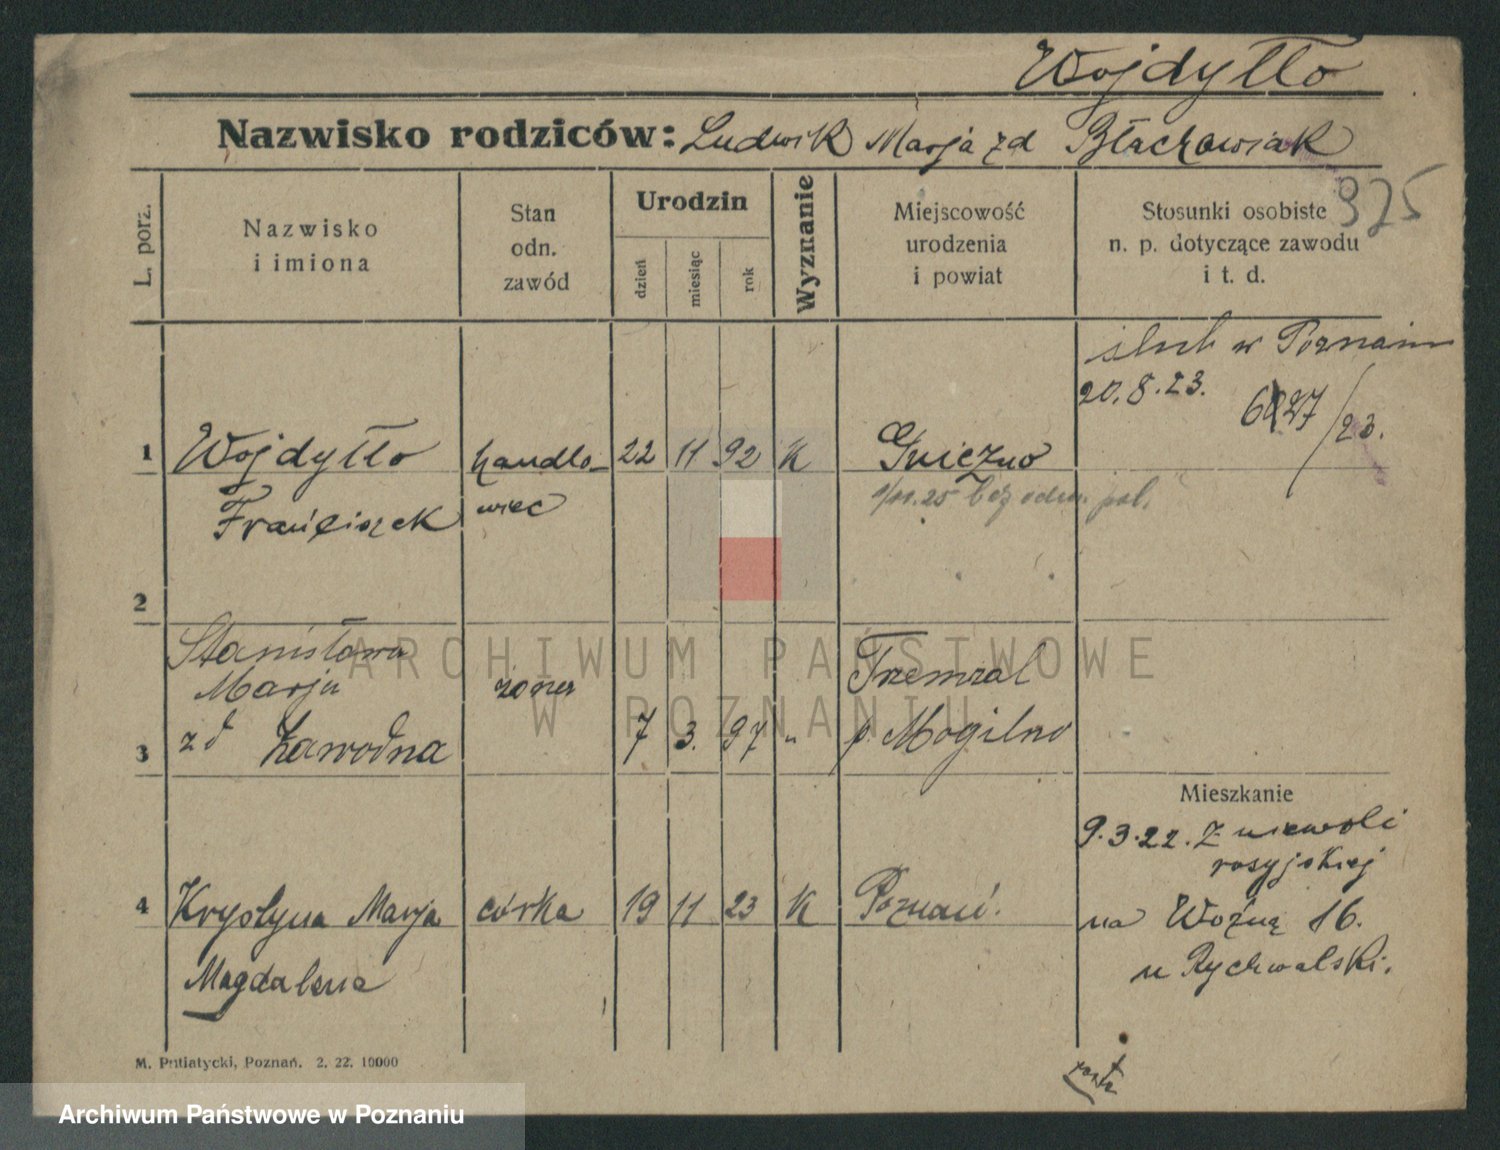 Wojdyłło
Nazwisko rodziców: Ludwik Marja zd Błachowiak
925
L. porz.
Nazwisko
i imiona
Stan
odn.
zawód
Urodzin
dzień
miesiąc
rok
Wyznanie
Miejscowość
urodzenia
i powiat
Stosunki osobiste
n. p. dotyczące zawodu
i t. d.
ślub w Poznaniu
20.8.23.
/23.
1 Wojdyłło handlo- 22 11 92 K Gniezno
Franciszek wiec
25 bez odm. pol.
2
Stanisława
Marja żona Trzemżal
3 zd Zawodna 7 3. 97 " p. Mogilno
Mieszkanie
9.3.22. Z niewoli
rosyjskiej
4 Krystyna Marja córka 19 11 23 K Poznań.
na Woźną 16.
Magdalena
u Rychwalski.
M. Putiatycki, Poznań. 2. 22. 10000
ARCHIWUM PAŃSTWOWE
W POZNANIU
Archiwum Państwowe w Poznaniu